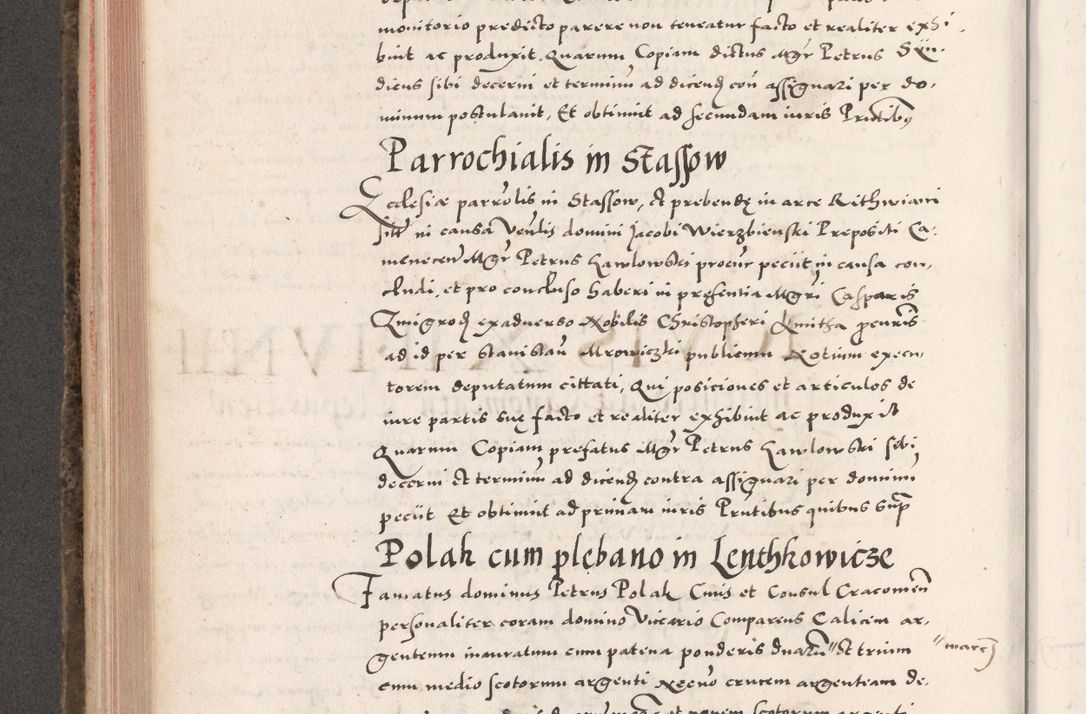 monitorio predicto parere non teneatur facto et realiter exhi-
buit ac produxit. Quarum Copiam dictus Mgr Petrus Sÿn-
dicus sibi decerni et terminũ ad dicend con̄ assignari per do-
minum postulavit, Et obtinuit ad secundam iuris Prutibq
Parrochialis in Stassow
Ecclesiæ parrõlis in Stassow, et prebendę in arce Rithwiani
sitę in causa Venlis domini Jacobi Wierzbienski Prepositi Ca-
menecen Mgr Petrus Gawlowski procur peciit, in causa con-
cludi, et pro concluso haberi in presentia Mgri Casparis
Qmigrod ex adverso Nobilis Christopheri Kmitha pcuris
ad id per Stanislau Mrowiczki publicum Notium execu-
torem deputatum cittati, Qui posiciones et articulos de
iure partis suę facto et realiter exhibuit ac produxit
Quarum Copiam prefatus Mgr Petrus Gawlowski sibi
decerni et terminũ ad dicend contra assignari per dominũ
peciit Et obtinuit ad primam iuris Prutibus quibus sup
Polak cum plebano in Lenthkowicze
Famatus dominus Petrus Polak Civis et Consul Cracovien
personaliter coram domino Vicario Comparens Calicem ar-
genteum inauratum cum patena ponderis duarũ " et trium "marc
cum medio scotorum argenti Necnõ crucem argenteam de-